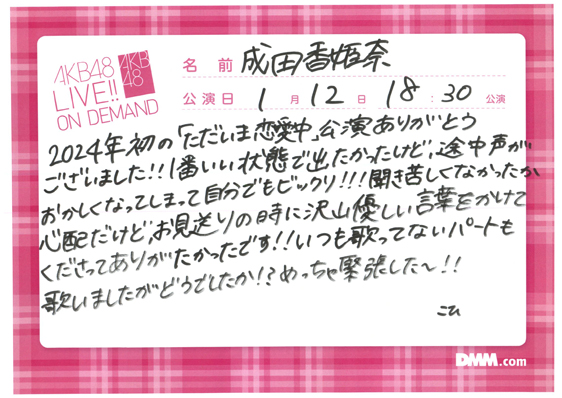 AKB48
LIVE!!
ON DEMAND
AKB
48
名前 成田香姫奈
公演日 1月12日 18:30 公演
2024年初の「ただいま恋愛中」公演ありがとう
ございました!!1番いい状態で出たかったけど、途中声が
おかしくなってしまって自分でもビックリ!!!聞き苦しくなかったか
心配だけど、お見送りの時に沢山優しい言葉をかけて
くださってありがたかったです!!いつも歌ってないパートも
歌いましたがどうでしたか!?めっちゃ緊張した〜!!
こひ
DMM.com